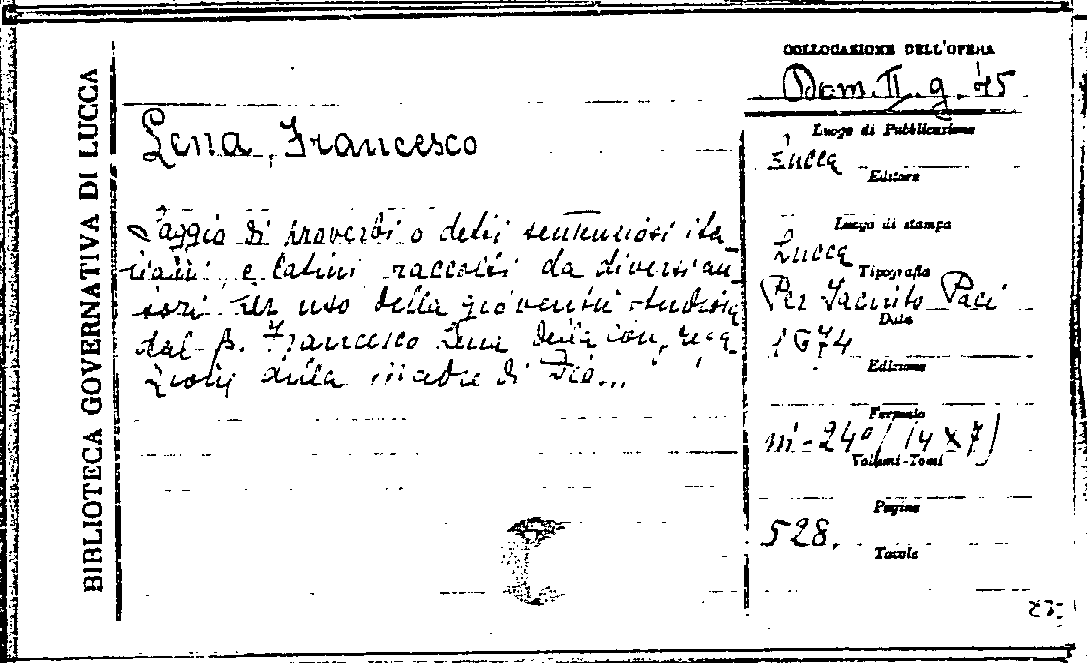 BIBLIOTECA GOVERNATIVA DI LUCCA
Lena, Francesco
Saggio di proverbi o detti sentenziosi ita
liani, e latini raccolti da diversi au
tori per uso della gioventù studiosa
dal p. Francesco Lena della congrega
zione della madre di Dio...
COLLOCAZIONE DELL'OPERA
Dom. II. g. 45
Luogo di Pubblicazione
Lucca
Editore
Luogo di stampa
Lucca
Tipografia
Per Iacinto Paci
Data
1674
Edizione
Formato
in-24°/(14x7)
Volumi-Tomi
Pagine
528.
Tavole